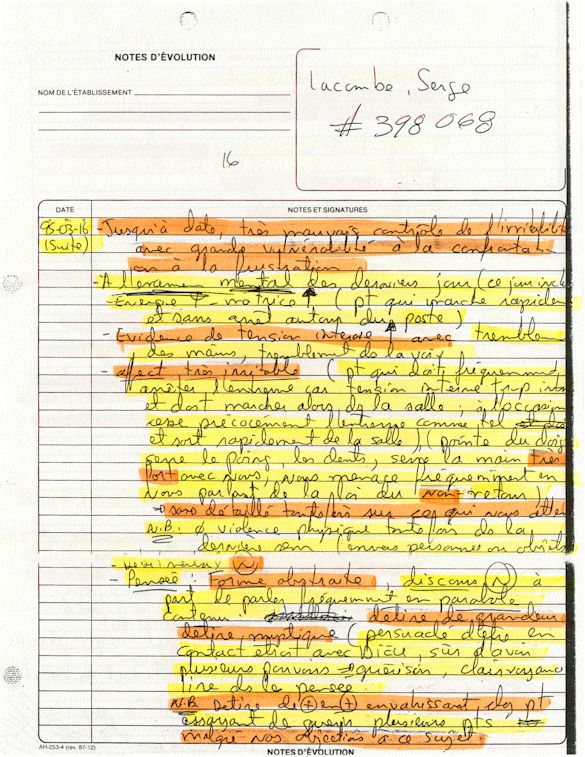 NOTES D'ÉVOLUTION
NOM DE L'ÉTABLISSEMENT
Lacombe, Serge
# 398068
16
DATE NOTES ET SIGNATURES
95-03-16 - Jusqu'à date, très mauvais contrôle de l'irritabilité
(Suite) avec grande vulnérabilité à la confrontation
ou à la frustration
- À l'examen mental des derniers jours (ce jour inclu
- Énergie ↑ - motrice, (pt qui marche rapidement
et sans arrêt autour du poste)
- Évidence de tension interne, avec tremblement
des mains, tremblement de la voix
- affect très irritable (pt qui doit fréquemment
arrêter l'entrevue car tension interne trop
et doit marcher alors ds la salle ; à l'occasion
cesse précocement l'entrevue comme tel
et sort rapidement de la salle) (pointe du doigt
serre le poing, les dents, serre la main très
fort avec nous, nous menace fréquemment en
nous parlant de la loi du non-retour)
→ sans détaillé toutefois sur ce qui nous attend
N.B. ∅ violence physique toutefois de la
dernière sem (envers personnes ou objets
N
- Pensée : Forme abstraite, discours N à
part le parler fréquemment en parabole
contenu délire de grandeur
délire mystique (persuadé d'être en
contact étroit avec Dieu, sûr d'avoir
plusieurs pouvoirs → guérison, clairvoyance
lire ds la pensée
N.B. Délire de + en + envahissant, pt
essayant de guérir plusieurs pts
malgré nos objections à ce sujet
AH-253-4 (rev. 87-12)
NOTES D'ÉVOLUTION